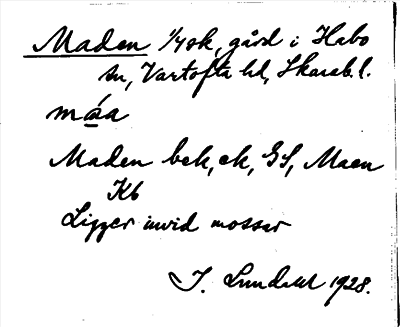 Maden 1/4 ok, gård i Habo
sn, Vartofta hd, Skarab. l.
máa
Maden bek, ek, GS, Maen
Kb
Ligger invid mossar
I. Lundahl 1928.